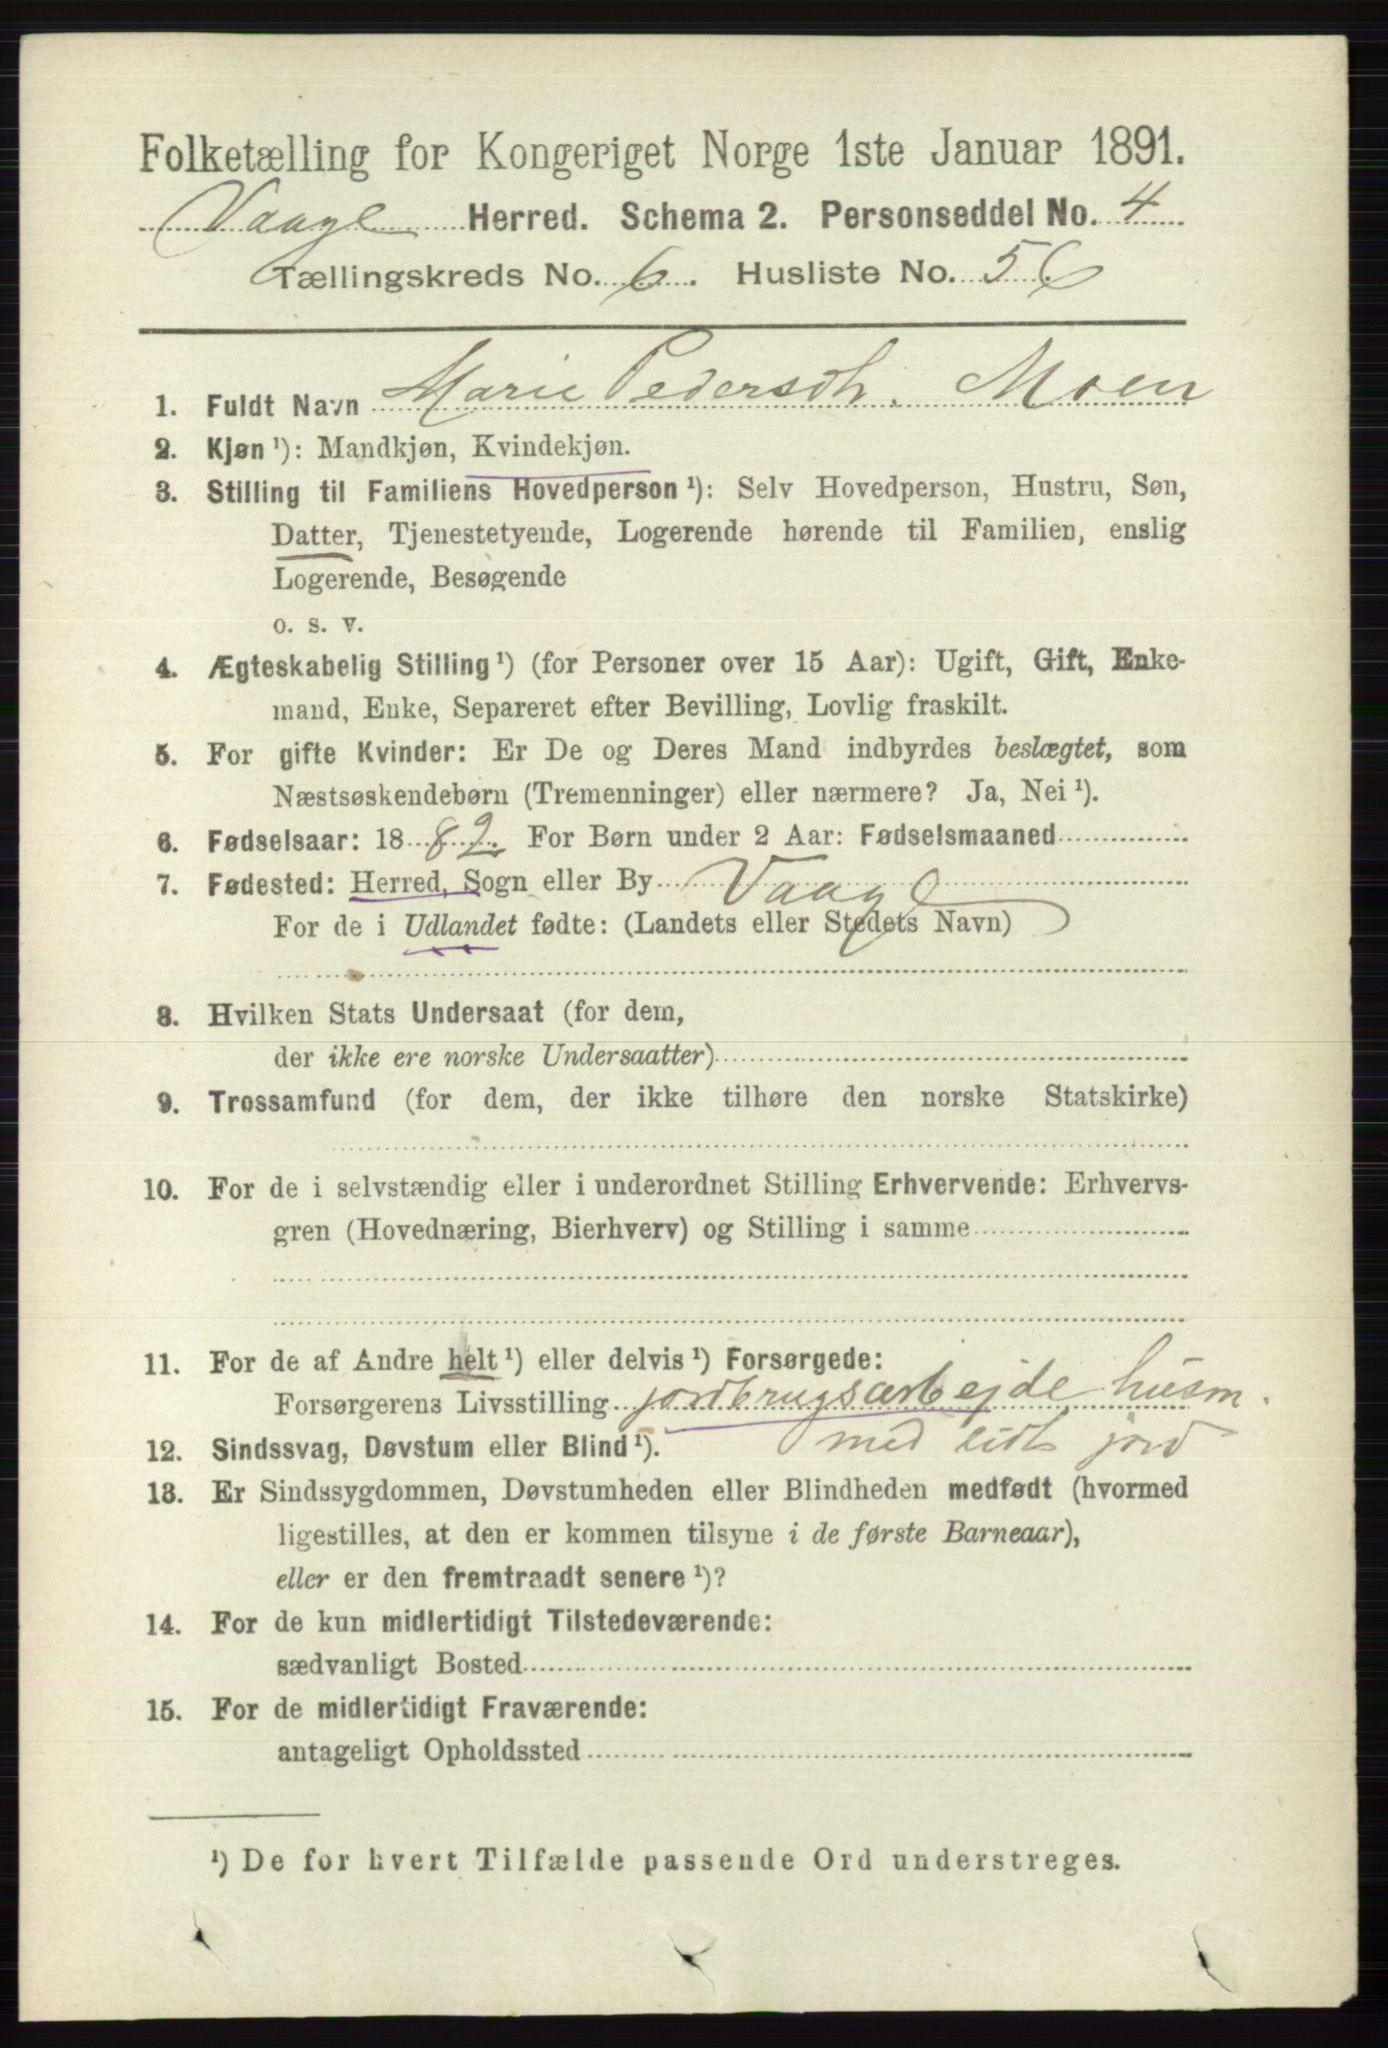 Folketælling for Kongeriget Norge 1ste Januar 1891.
Vaage Herred. Schema 2. Personseddel No. 4
Tællingskreds No. 6. Husliste No. 56
1. Fuldt Navn Marie Pedersdt. Moen
2. Kjøn ¹): Mandkjøn, Kvindekjøn.
3. Stilling til Familiens Hovedperson ¹): Selv Hovedperson, Hustru, Søn,
Datter, Tjenestetyende, Logerende hørende til Familien, enslig
Logerende, Besøgende
o. s. v.
4. Ægteskabelig Stilling ¹) (for Personer over 15 Aar): Ugift, Gift, Enke-
mand, Enke, Separeret efter Bevilling, Lovlig fraskilt.
5. For gifte Kvinder: Er De og Deres Mand indbyrdes beslægtet, som
Næstsøskendebørn (Tremenninger) eller nærmere? Ja, Nei ¹).
6. Fødselsaar: 1882. For Børn under 2 Aar: Fødselsmaaned
7. Fødested: Herred, Sogn eller By Vaage
For de i Udlandet fødte: (Landets eller Stedets Navn)
8. Hvilken Stats Undersaat (for dem,
der ikke ere norske Undersaatter)
9. Trossamfund (for dem, der ikke tilhøre den norske Statskirke)
10. For de i selvstændig eller i underordnet Stilling Erhvervende: Erhvervs-
gren (Hovednæring, Bierhverv) og Stilling i samme
11. For de af Andre helt ¹) eller delvis ¹) Forsørgede:
Forsørgerens Livsstilling jordbrugsarbejde husm.
12. Sindssvag, Døvstum eller Blind ¹). med lidt jord
13. Er Sindssygdommen, Døvstumheden eller Blindheden medfødt (hvormed
ligestilles, at den er kommen tilsyne i de første Barneaar),
eller er den fremtraadt senere ¹)?
14. For de kun midlertidigt Tilstedeværende:
sædvanligt Bosted
15. For de midlertidigt Fraværende:
antageligt Opholdssted
¹) De for hvert Tilfælde passende Ord understreges.